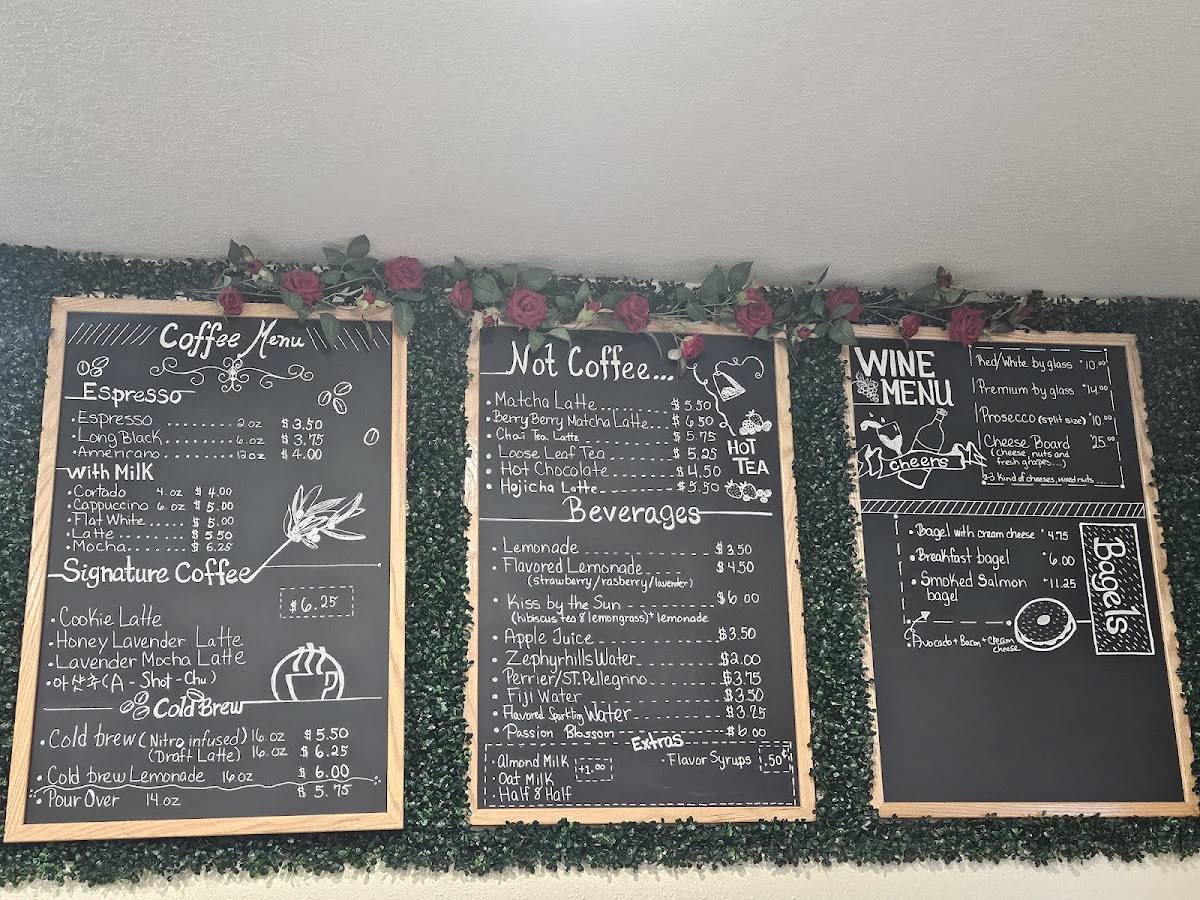 Coffee Menu
Espresso
• Espresso ........ 2 oz $ 3.50
• Long Black ....... 6 oz $ 3.75
• Americano ....... 12 oz $ 4.00
With Milk
• Cortado 4 oz $ 4.00
• Cappuccino 6 oz $ 5.00
• Flat White ..... $ 5.00
• Latte ......... $ 5.50
• Mocha ........ $ 6.25
Signature Coffee
$ 6.25
• Cookie Latte
• Honey Lavender Latte
• Lavender Mocha Latte
• 아샷추 (A - Shot - Chu)
Cold Brew
• Cold brew (Nitro infused) 16 oz $ 5.50
(Draft Latte) 16 oz $ 6.25
• Cold brew Lemonade 16 oz $ 6.00
• Pour Over 14 oz $ 5.75
Not Coffee...
• Matcha Latte $ 5.50
• Berry Berry Matcha Latte $ 6.50
• Chai Tea Latte $ 5.75
• Loose Leaf Tea $ 5.25
• Hot Chocolate $ 4.50
• Hojicha Latte $ 5.50
HOT
TEA
Beverages
• Lemonade $ 3.50
• Flavored Lemonade $ 4.50
(strawberry/rasberry/lavender)
• Kiss by the Sun $ 6.00
(hibiscus tea & lemongrass) + lemonade
• Apple Juice $3.50
• Zephyrhills Water $2.00
• Perrier/ST. Pellegrino $3.75
• Fiji Water $3.50
• Flavored Sparkling Water $3.25
• Passion Blossom $6.00
Extras
• Almond Milk
• Oat Milk
• Half & Half
+1.00
• Flavor Syrups .50¢
WINE
MENU
Red/White by glass $10.00
Premium by glass $14.00
Prosecco (split size) $10.00
Cheese Board $25.00
(cheese, nuts and
fresh grapes...)
2-3 Kind of cheeses, mixed nuts ...
cheers
• Bagel with cream cheese $4.75
• Breakfast bagel $6.00
• Smoked Salmon $11.25
bagel
• Avocado + Bacon + cream
cheese
Bagels